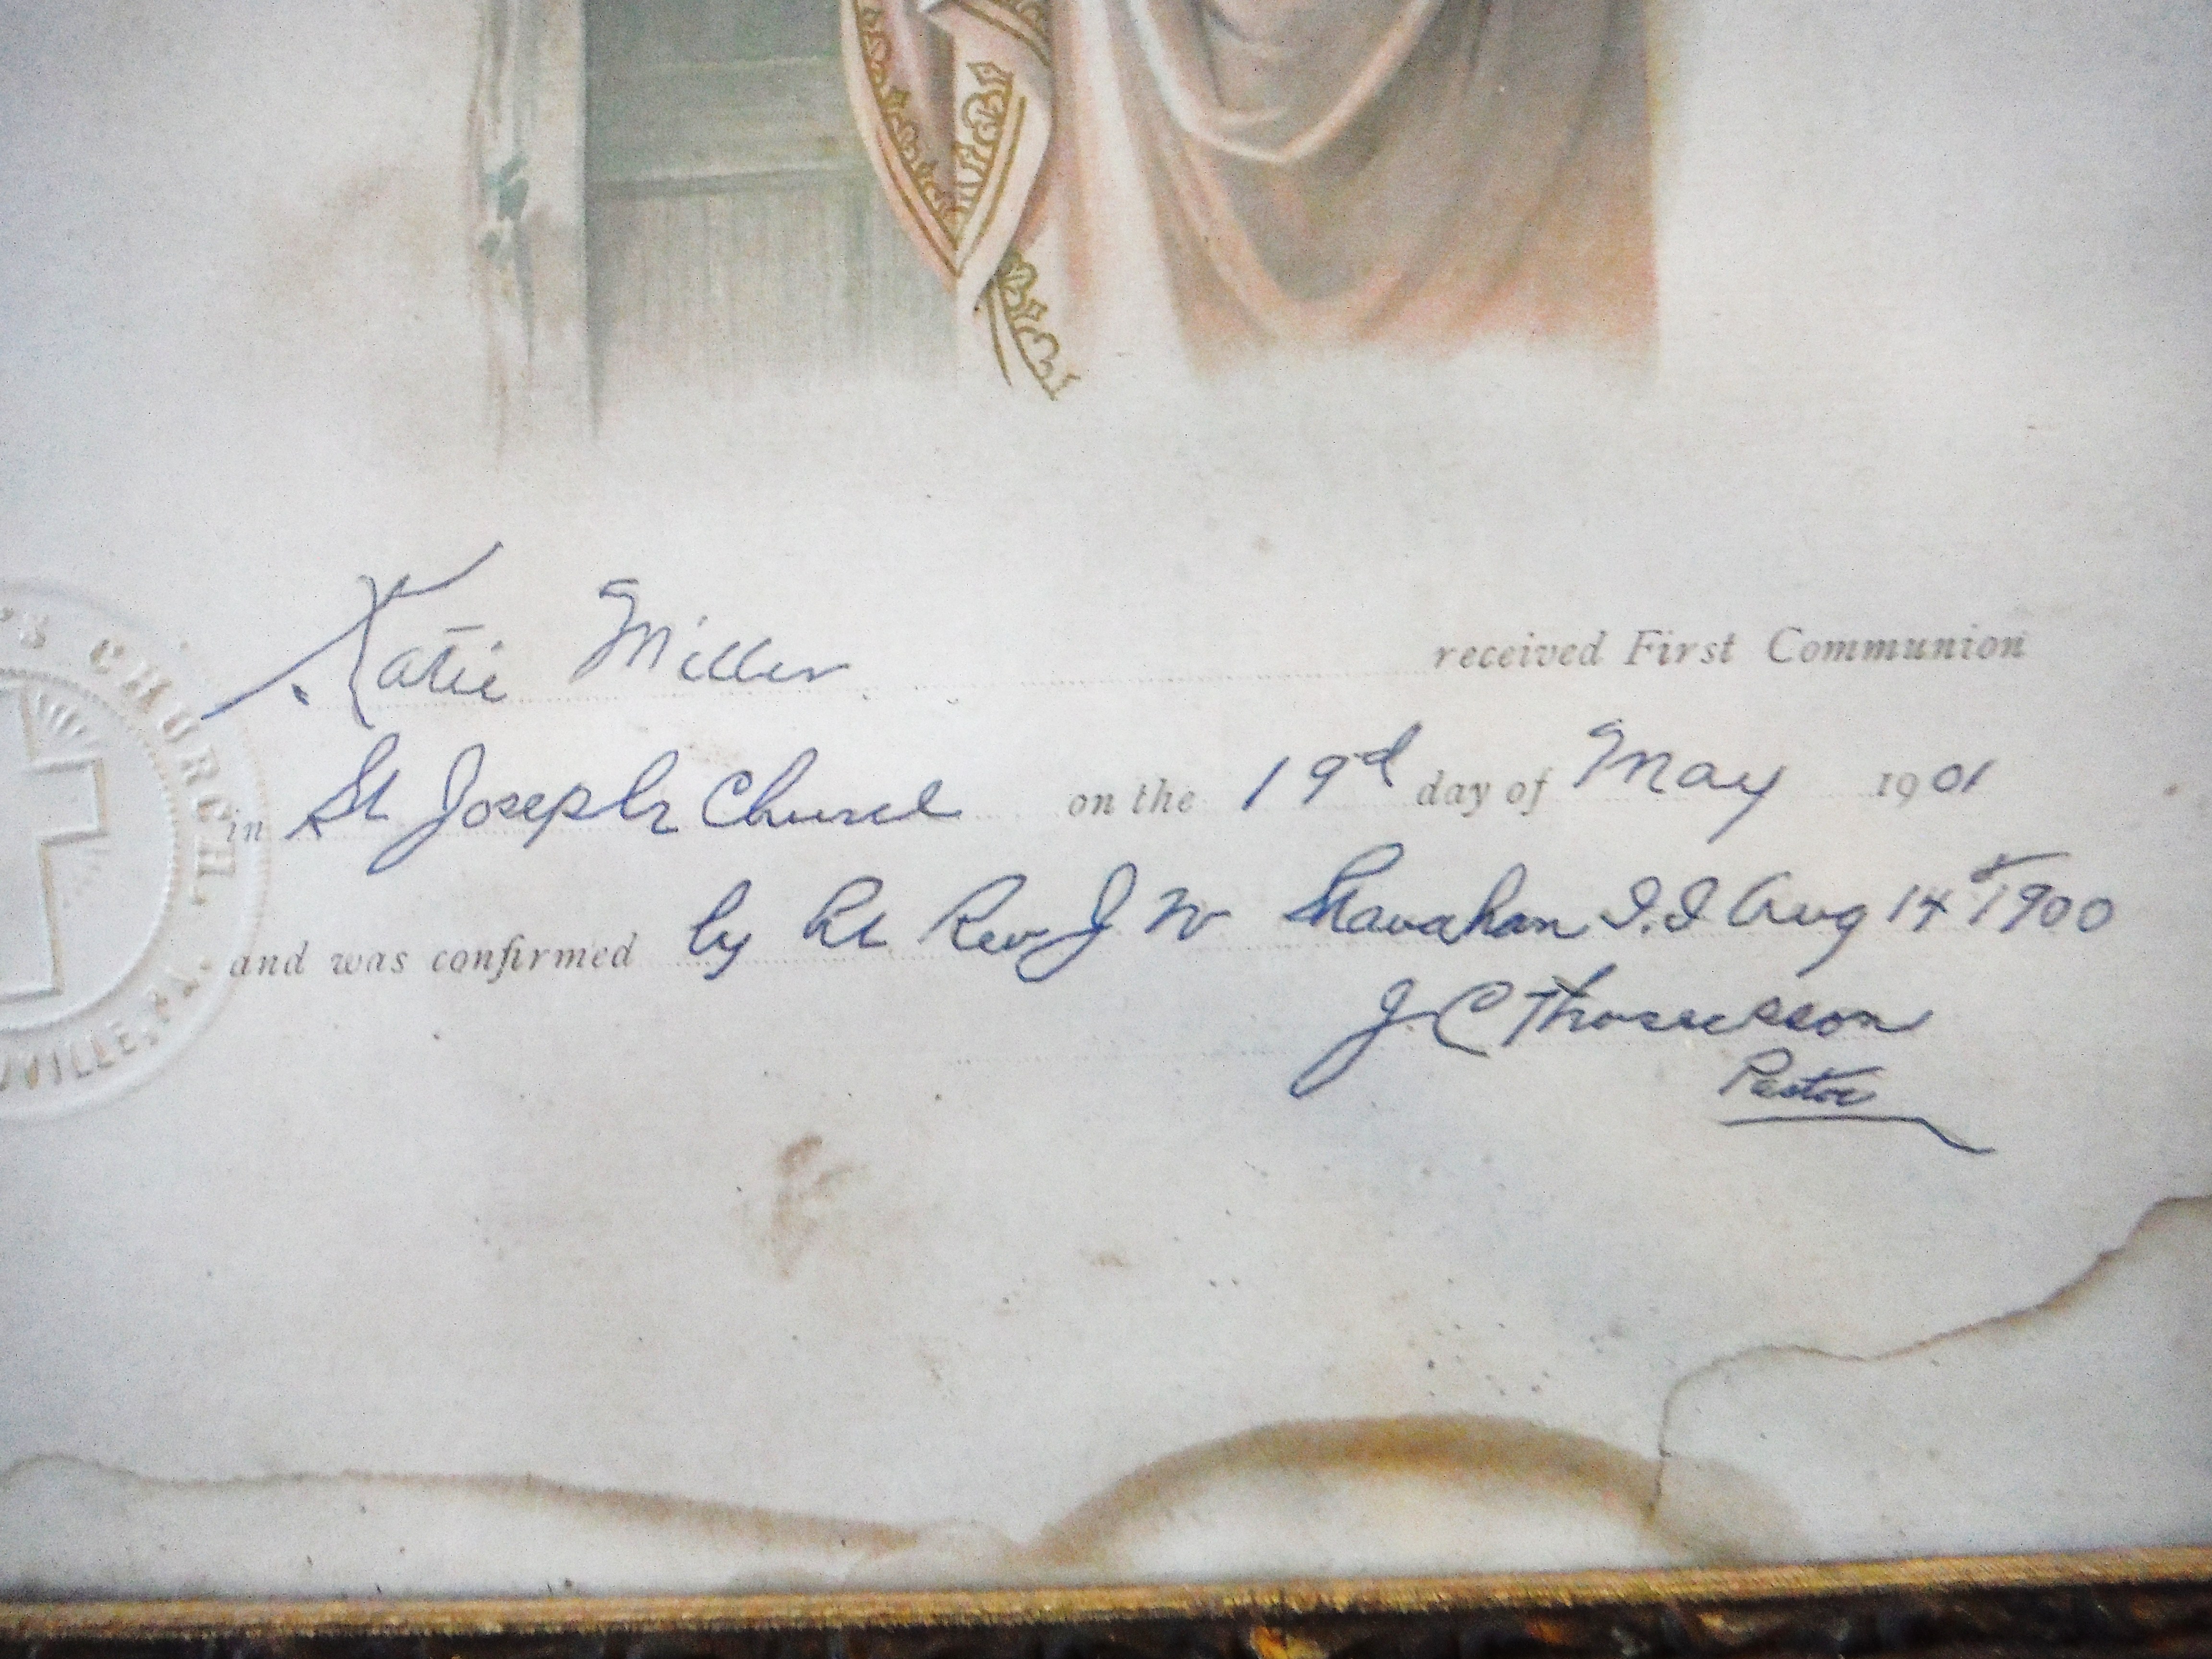 Katie Miller received First Communion
in St Joseph Church on the 19d day of May 1901
and was confirmed by Rt Rev J W Shanahan D.D Aug 14t 1900
J. C Thompson
Pastor
'S CHURCH.
VILLE, PA.